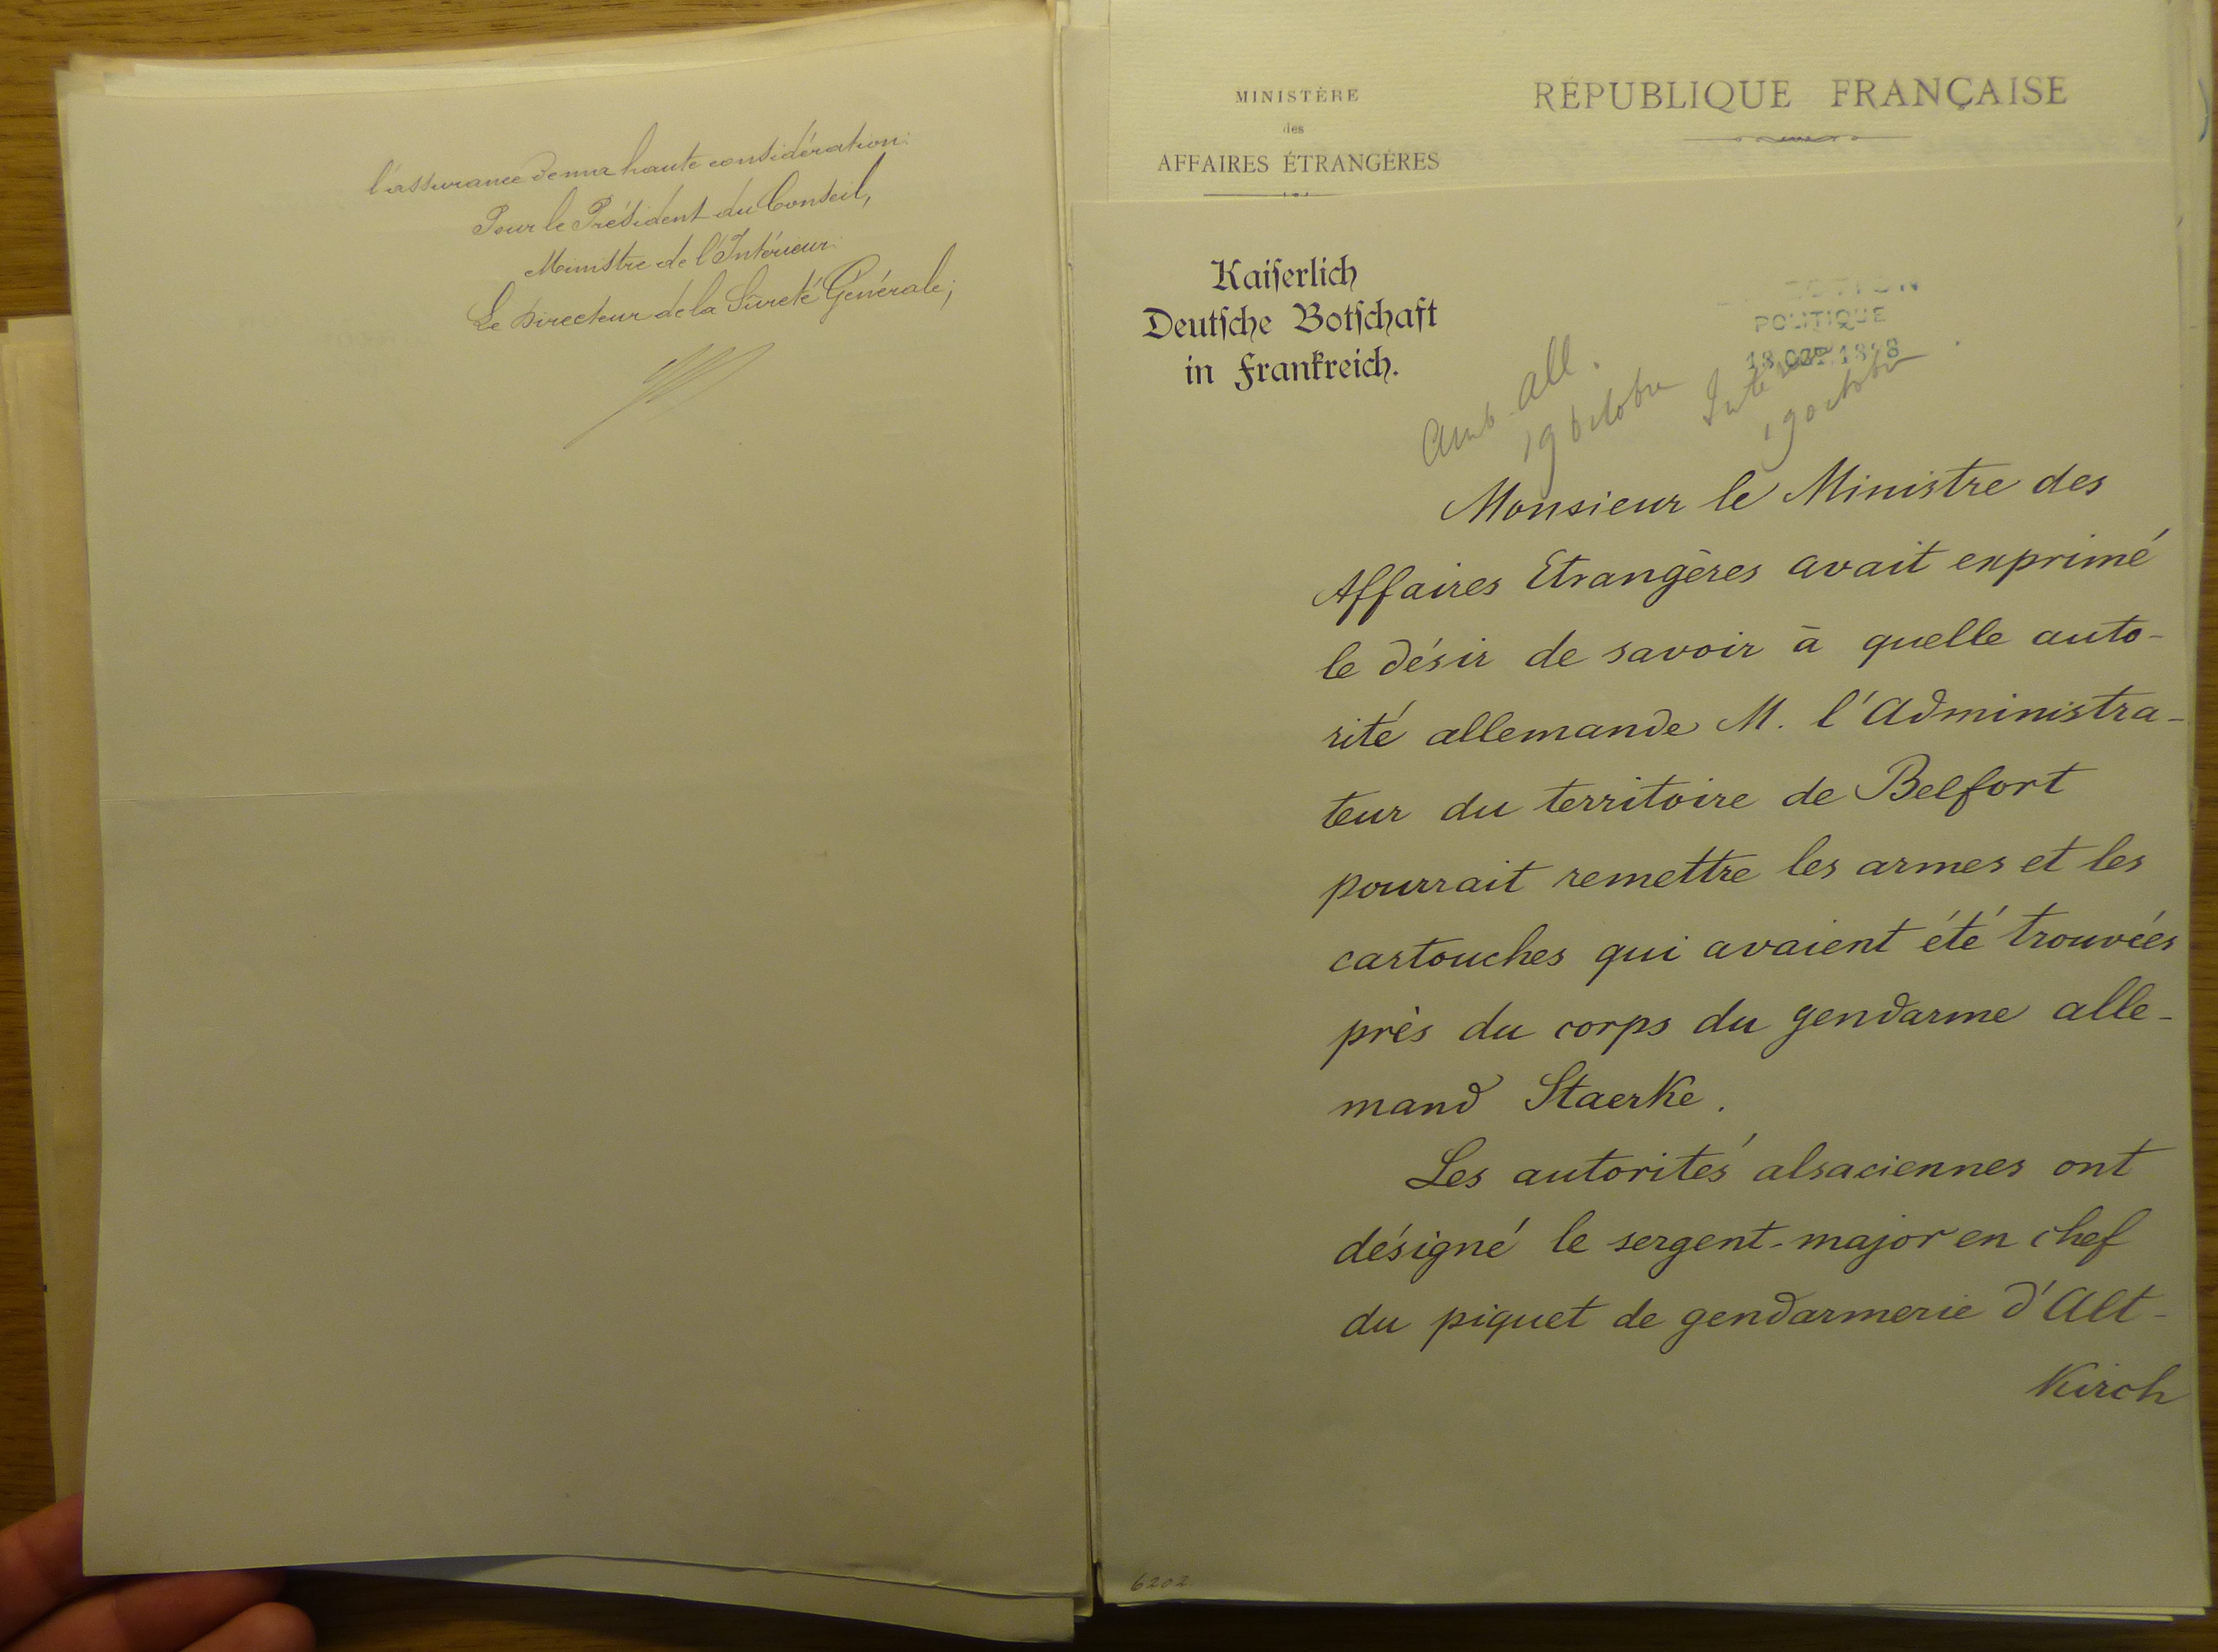 l'assurance de ma haute considération.
Pour le Président du Conseil,
Ministre de l'Intérieur.
Le Directeur de la Sûreté Générale;
MINISTÈRE
des
AFFAIRES ÉTRANGÈRES
RÉPUBLIQUE FRANÇAISE
Kaiserlich
Deutsche Botschaft
in Frankreich.
POLITIQUE
Amb. all.
19 octobre
19 octobre
Monsieur le Ministre des
Affaires Etrangères avait exprimé
le désir de savoir à quelle auto-
rité allemande M. l'Administra-
teur du territoire de Belfort
pourrait remettre les armes et les
cartouches qui avaient été trouvées
près du corps du gendarme alle-
mand Staerke.
Les autorités alsaciennes ont
désigné le sergent-major en chef
du piquet de gendarmerie d'Alt-
Kirch
6202